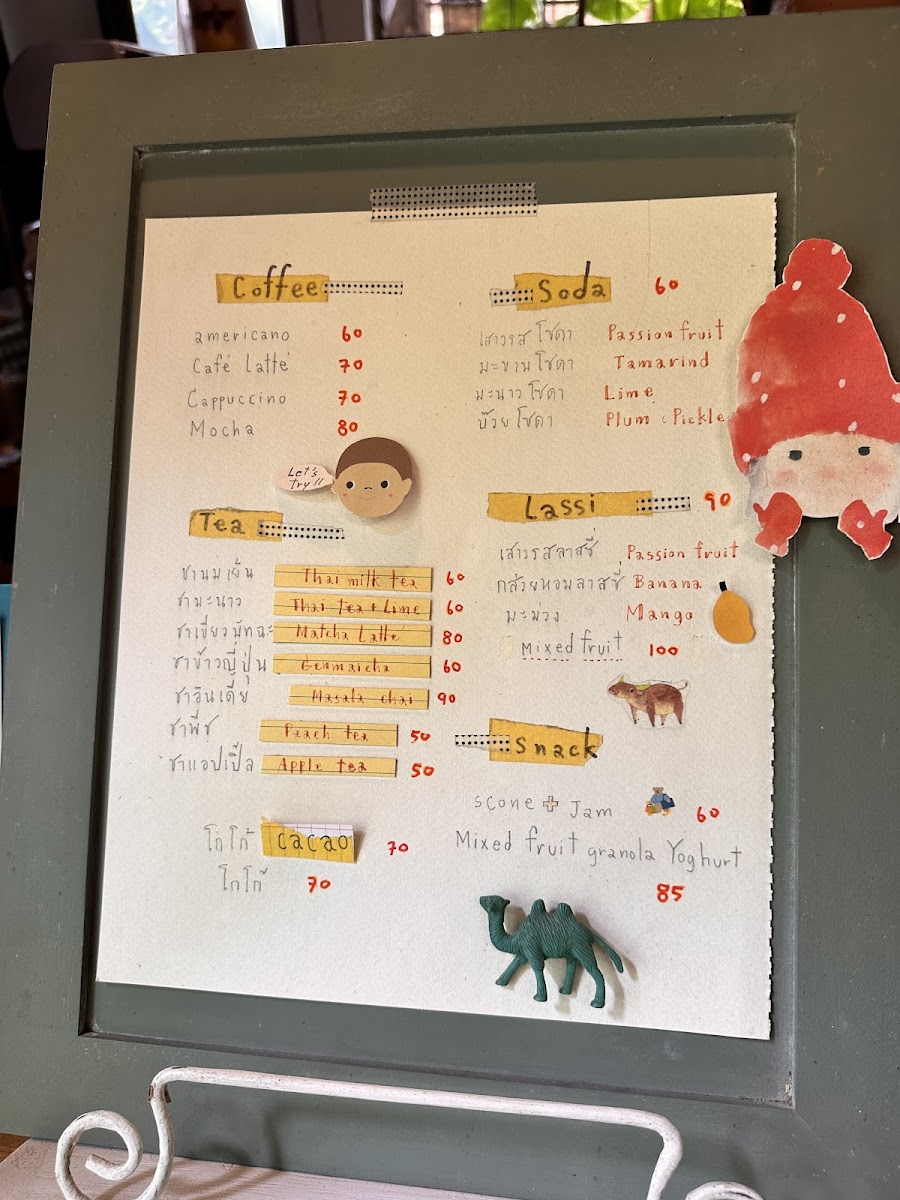 Coffee
americano 60
Café Latté 70
Cappuccino 70
Mocha 80
Let's
try!!
Tea
ชานมเย็น Thai milk tea 60
ชามะนาว Thai tea + Lime 60
ชาเขียวมัทฉะ Matcha Latté 80
ชาข้าวญี่ปุ่น Genmaicha 60
ชาอินเดีย Masala chai 90
ชาพีช Peach tea 50
ชาแอปเปิ้ล Apple tea 50
โกโก้ cacao 70
โกโก้ 70
Soda 60
เสาวรสโซดา Passion fruit
มะขามโซดา Tamarind
มะนาวโซดา Lime
บ๊วยโซดา Plum Pickle
Lassi 90
เสาวรสลาสซี่ Passion fruit
กล้วยหอมลาสซี่ Banana
มะม่วง Mango
Mixed fruit 100
Snack
scone + Jam 60
Mixed fruit granola Yoghurt
85